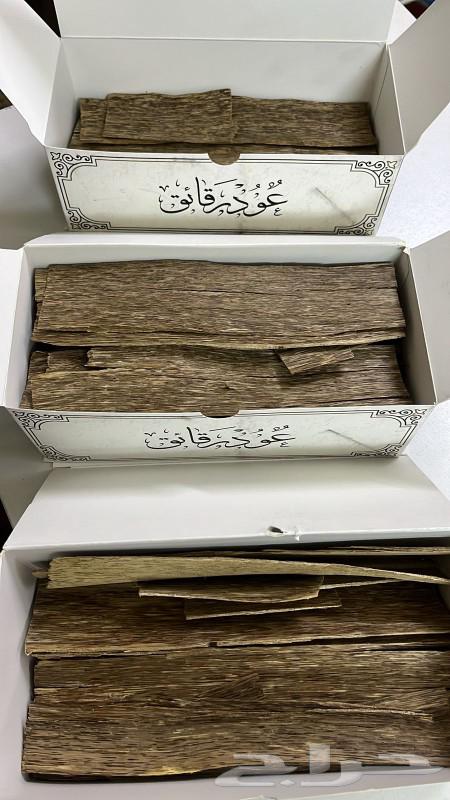 عُودْ رَقَائِق
عُودْ رَقَائِق
حراج